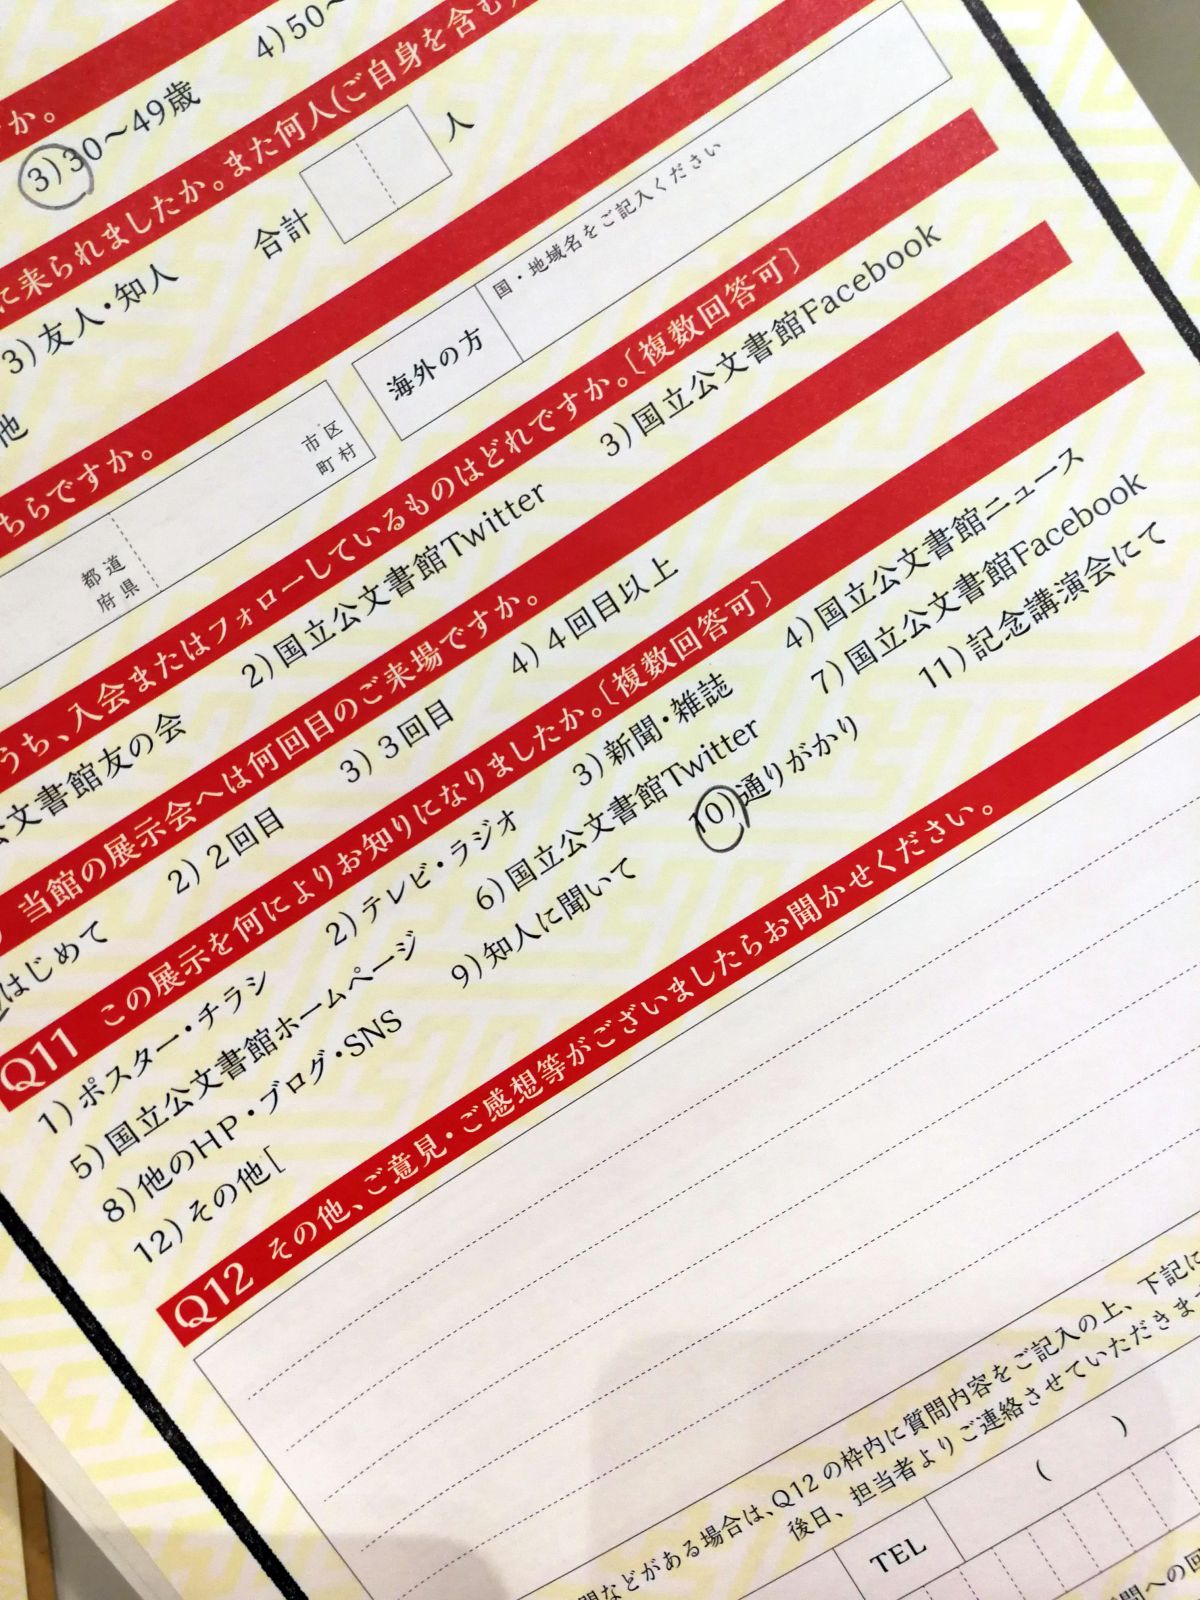 か。
3)30〜49歳
4)50〜
に来られましたか。また何人(ご自身を含む
3)友人・知人
合計
人
他
ちらですか。
都道
府県
市区
町村
海外の方
国・地域名をご記入ください
うち、入会またはフォローしているものはどれですか。〔複数回答可〕
公文書館友の会
2)国立公文書館Twitter
3)国立公文書館Facebook
当館の展示会へは何回目のご来場ですか。
はじめて
2)2回目
3)3回目
4)4回目以上
Q11 この展示を何によりお知りになりましたか。〔複数回答可〕
1)ポスター・チラシ
2)テレビ・ラジオ
3)新聞・雑誌
4)国立公文書館ニュース
5)国立公文書館ホームページ
6)国立公文書館Twitter
7)国立公文書館Facebook
8)他のHP・ブログ・SNS
9)知人に聞いて
10)通りがかり
11)記念講演会にて
12)その他[
Q12 その他、ご意見・ご感想等がございましたらお聞かせください。
問などがある場合は、Q12の枠内に質問内容をご記入の上、下記に
後日、担当者よりご連絡させていただきま
TEL
( )
問への回